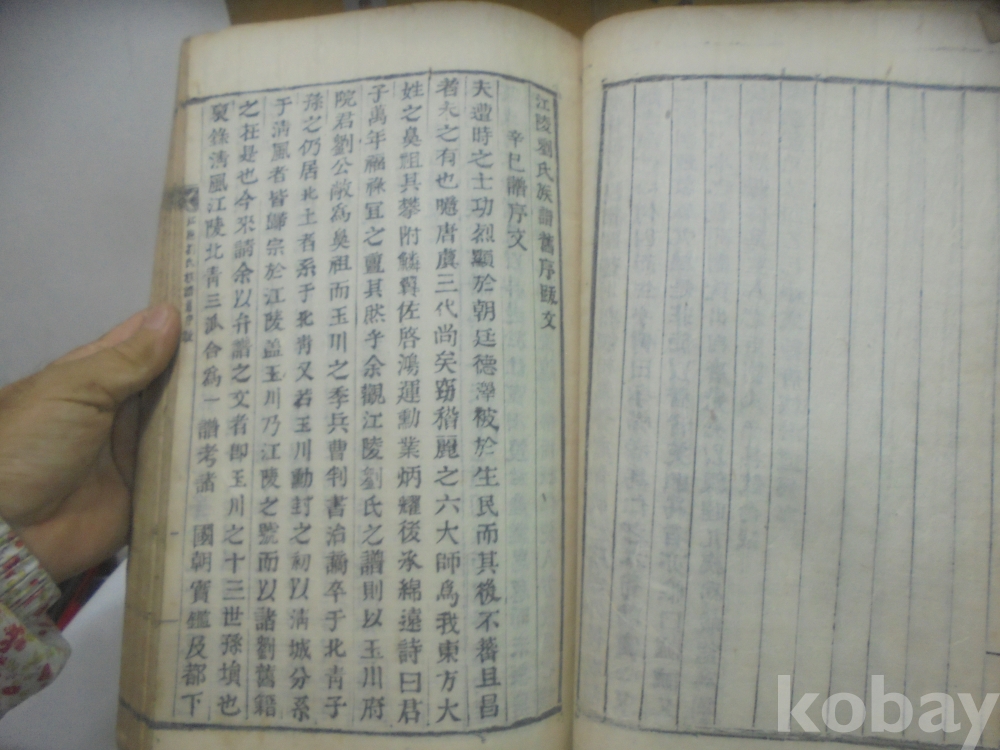 江陵劉氏族譜舊序跋文
辛巳譜序文
夫遭時之士功烈顯於朝廷德澤被於生民而其後不蕃且昌
者夫之有也噫唐虞三代尚矣窃稽麗之六大師爲我東方大
姓之鼻祖具攀附鱗翼佐啓鴻運勳業炳耀後承綿遠詩曰君
子萬年福祿冝之亶其然乎余觀江陵劉氏之譜則以玉川府
院君劉公敞爲鼻祖而玉川之季兵曹判書治薥卒于北靑子
孫之仍居北土者系于北靑又若玉川勳封之初以淸城分系
于淸風者皆歸宗於江陵盖玉川乃江陵之號而以諸劉舊籍
之在是也今來請余以弁譜之文者卽玉川之十三世孫塤也
裒錄淸風江陵北靑三派合爲一譜考諸 國朝寶鑑及都下
kobay